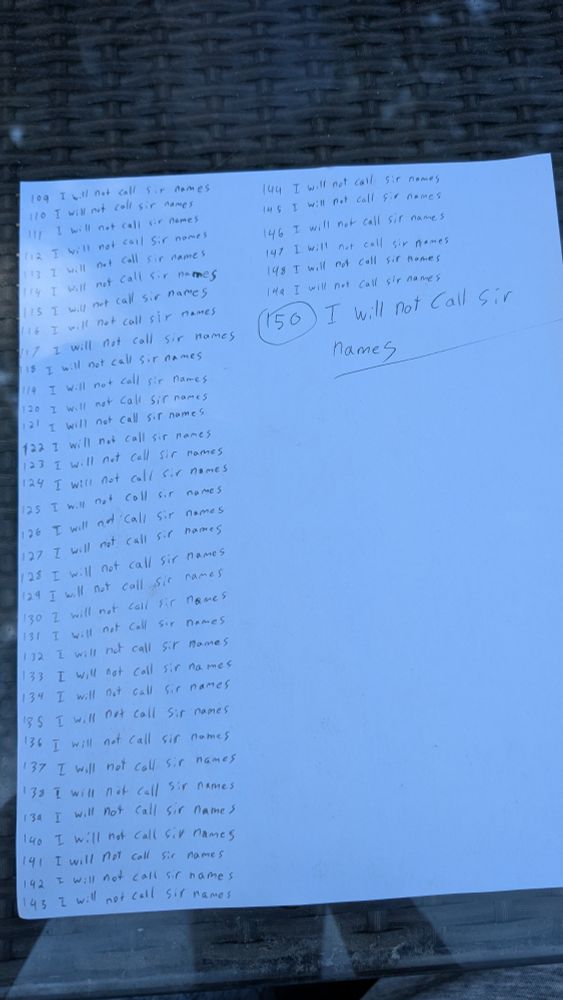 109 I will not call sir names
110 I will not call sir names
111 I will not call sir names
112 I will not call sir names
113 I will not call sir names
114 I will not call sir names
115 I will not call sir names
116 I will not call sir names
117 I will not call sir names
118 I will not call sir names
119 I will not call sir names
120 I will not call sir names
121 I will not call sir names
122 I will not call sir names
123 I will not call sir names
124 I will not call sir names
125 I will not call sir names
126 I will not call sir names
127 I will not call sir names
128 I will not call sir names
129 I will not call sir names
130 I will not call sir names
131 I will not call sir names
132 I will not call sir names
133 I will not call sir names
134 I will not call sir names
135 I will not call sir names
136 I will not call sir names
137 I will not call sir names
138 I will not call sir names
139 I will not call sir names
140 I will not call sir names
141 I will not call sir names
142 I will not call sir names
143 I will not call sir names
144 I will not call sir names
145 I will not call sir names
146 I will not call sir names
147 I will not call sir names
148 I will not call sir names
149 I will not call sir names
150 I will not call sir
names